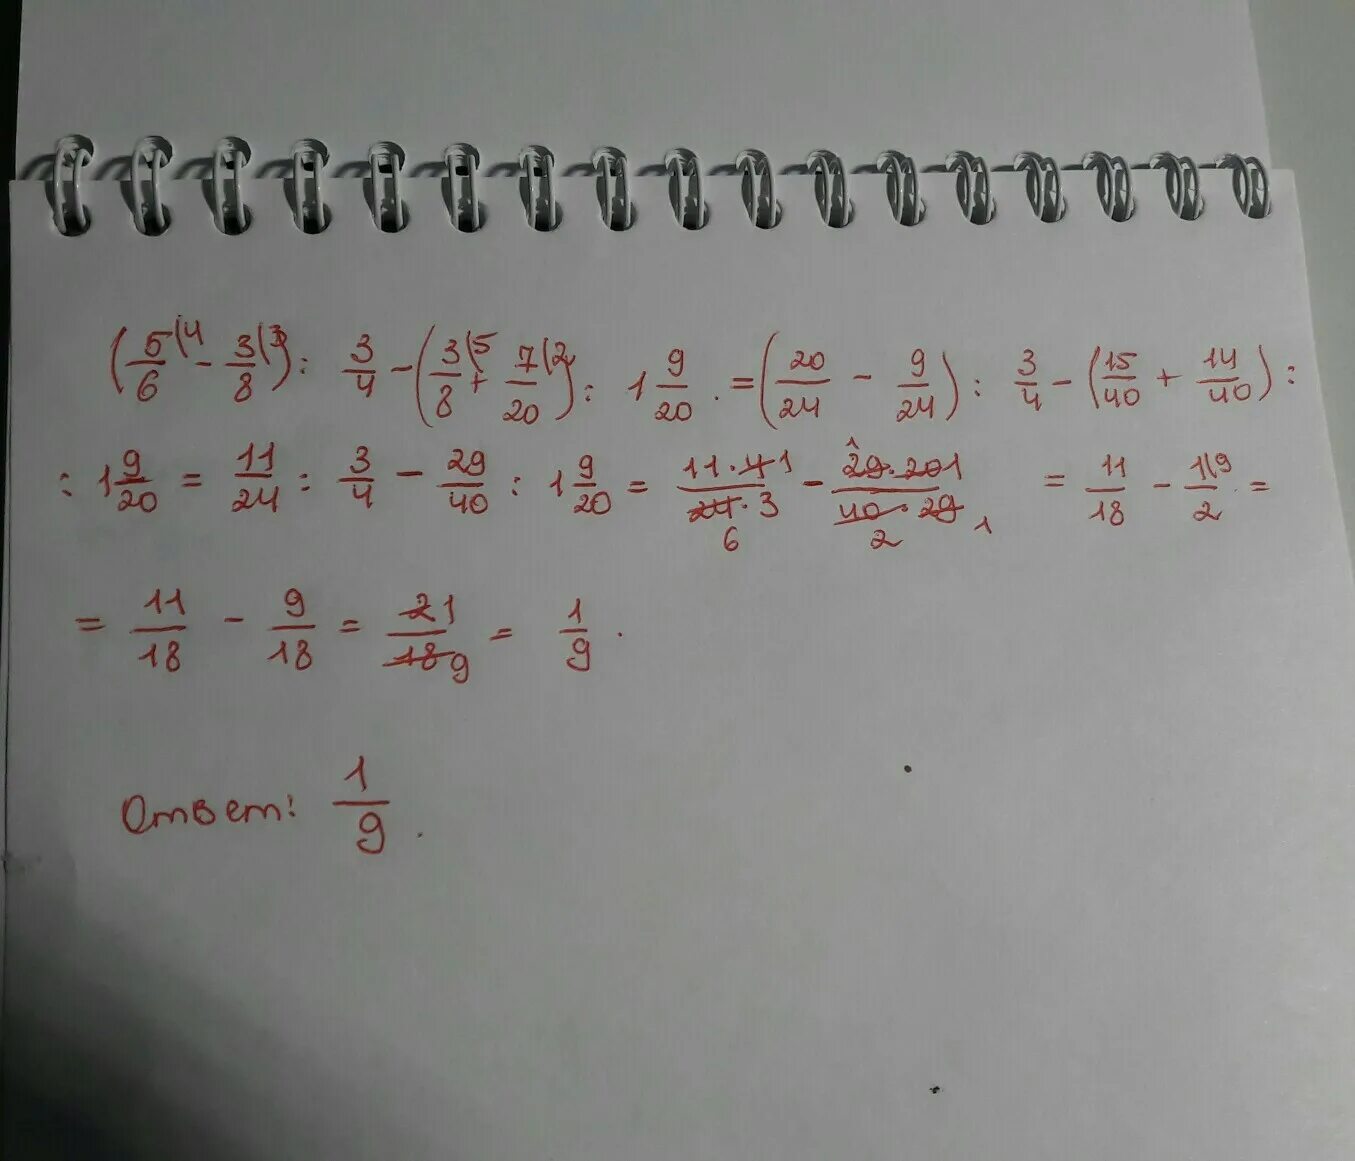 (5/6 (4 - 3/8 (3) : 3/4 - (3/8 (5 + 7/20 (2) : 1 9/20 . = (20/24 - 9/24) : 3/4 - (15/40 + 14/40) :
: 1 9/20 = 11/24 : 3/4 - 29/40 : 1 9/20 = 11·4 1/24·3 6 - 1 29·20 1/40·29 2 1 = 11/18 - 1(9/2 . =
= 11/18 - 9/18 = 2 1/18 9 = 1/9 .
Ответ: 1/9 .